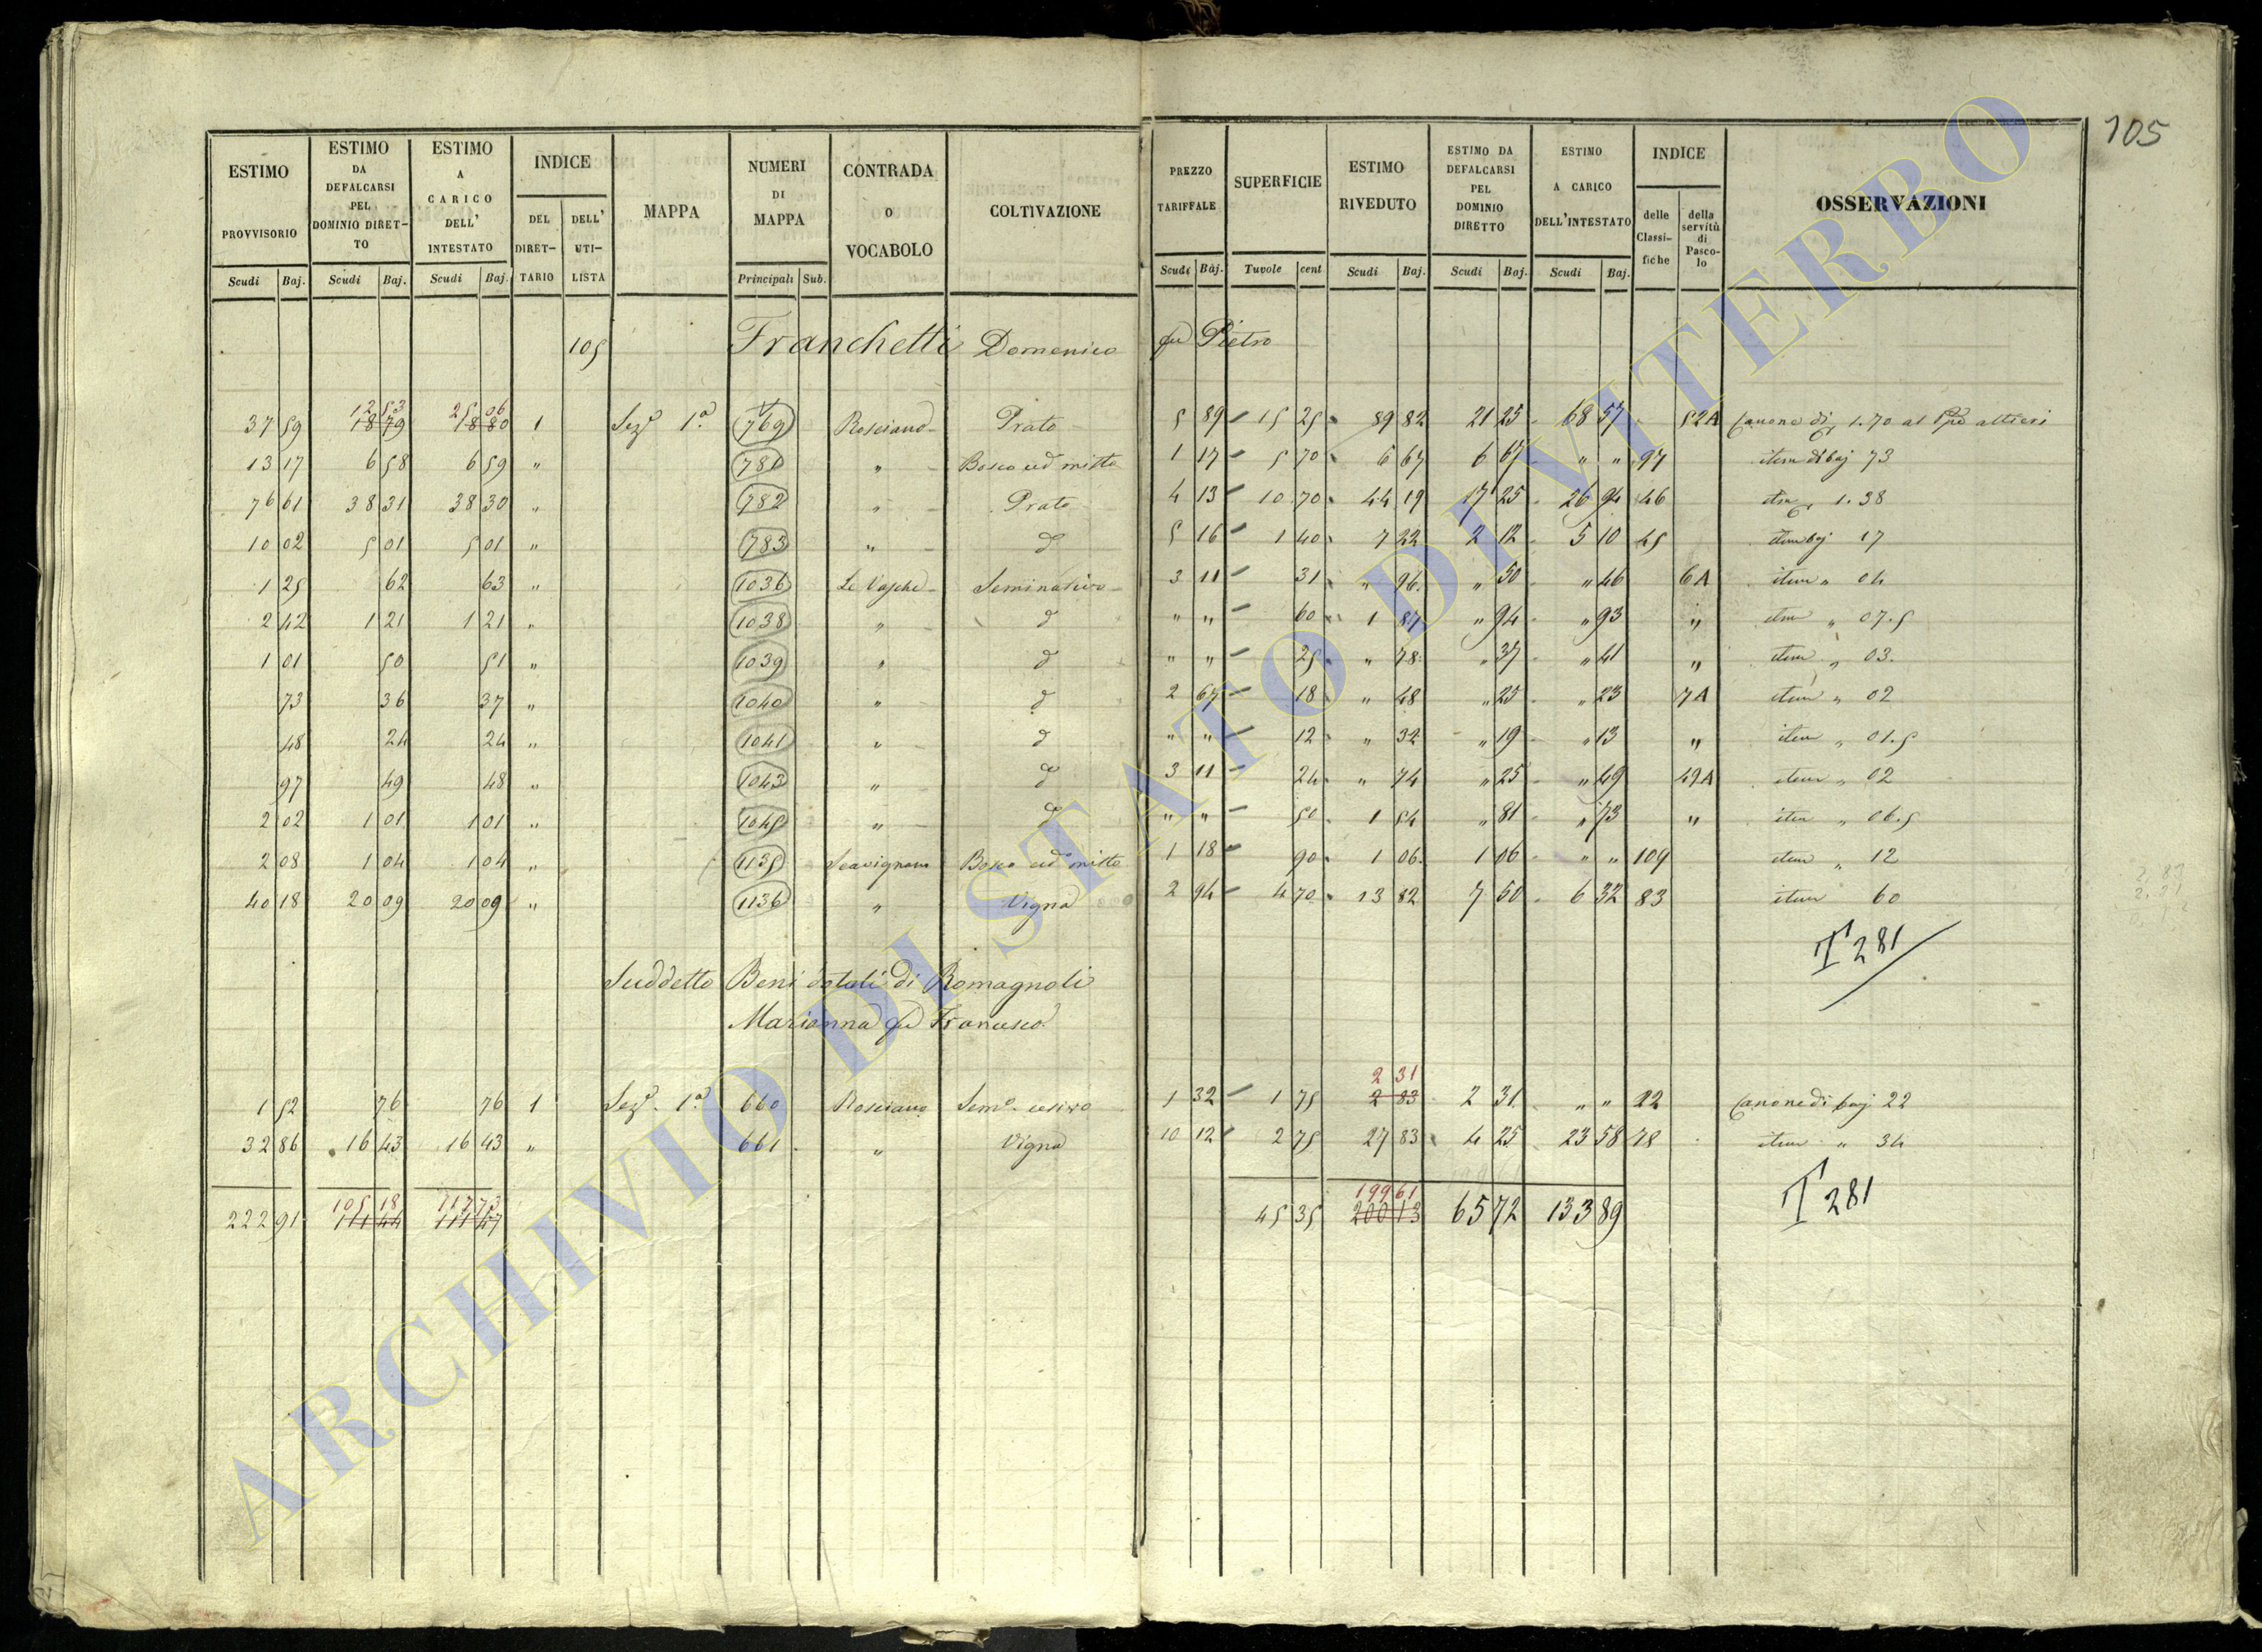 105
ESTIMO PROVVISORIO Scudi Baj.
ESTIMO DA DEFALCARSI PEL DOMINIO DIRETTO Scudi Baj.
ESTIMO A CARICO DELL' INTESTATO Scudi Baj.
INDICE DEL DIRETTARIO DELL' UTILISTA
MAPPA
NUMERI DI MAPPA Principali Sub.
CONTRADA O VOCABOLO
COLTIVAZIONE
PREZZO TARIFFALE Scudi Baj.
SUPERFICIE Tavole cent
ESTIMO RIVEDUTO Scudi Baj.
ESTIMO DA DEFALCARSI PEL DOMINIO DIRETTO Scudi Baj.
ESTIMO A CARICO DELL'INTESTATO Scudi Baj.
INDICE delle Classifiche della servitù di Pascolo
OSSERVAZIONI
105 Franchetti Domenico fu Pietro
12 53 25 06
37 59 18 79 18 80 1 Seze 1a 769 Rosciano Prato 5 89 15 25 89 82 21 25 68 57 52A Canone di 1.70 al altieri
13 17 6 58 6 59 " 781 " Bosco ced misto 1 17 5 70 6 67 6 67 " " 97 item di baj 73
76 61 38 31 38 30 " 782 " Prato 4 13 10 70 44 19 17 25 26 94 46 item 1.38
10 02 5 01 5 01 " 783 " d 5 16 1 40 7 22 2 12 5 10 45 item baj 17
1 25 62 63 " 1036 Le Vasche Seminativo 3 11 31 " 96 " 50 " 46 6A item " 04
2 42 1 21 1 21 " 1038 " d " " 60 1 87 " 94 " 93 " item " 07.5
1 01 50 51 " 1039 " d " " 25 " 78 " 37 " 41 " item " 03.
73 36 37 " 1040 " d 2 67 18 " 48 " 25 " 23 7A item " 02
48 24 24 " 1041 " d " " 12 " 32 " 19 " 13 " item " 01.5
97 49 48 " 1043 " d 3 11 24 " 74 " 25 " 49 49A item " 02
2 02 1 01 1 01 " 1045 " d " " 50 1 54 " 81 " 73 " item " 06.5
2 08 1 04 1 04 " 1135 Bosco ced misto 1 18 90 1 06 1 06 " " 109 item " 12
40 18 20 09 20 09 " 1136 " Vigna 2 94 4 70 13 82 7 50 6 32 83 item 60
T 281
Suddetto Beni dotali di Romagnoli
Marianna fu Francesco
2 31
1 52 76 76 1 Seze 1a 660 Rosciano Semo 1 32 1 75 2 83 2 31 " " 22 Canone di baj 22
32 86 16 43 16 43 " 661 " Vigna 10 12 2 75 27 83 4 25 23 58 78 item " 34
T 281
105 18 117 73 199 61
222 91 111 44 111 47 45 35 200 13 65 72 133 89
ARCHIVIO DI STATO DI VITERBO